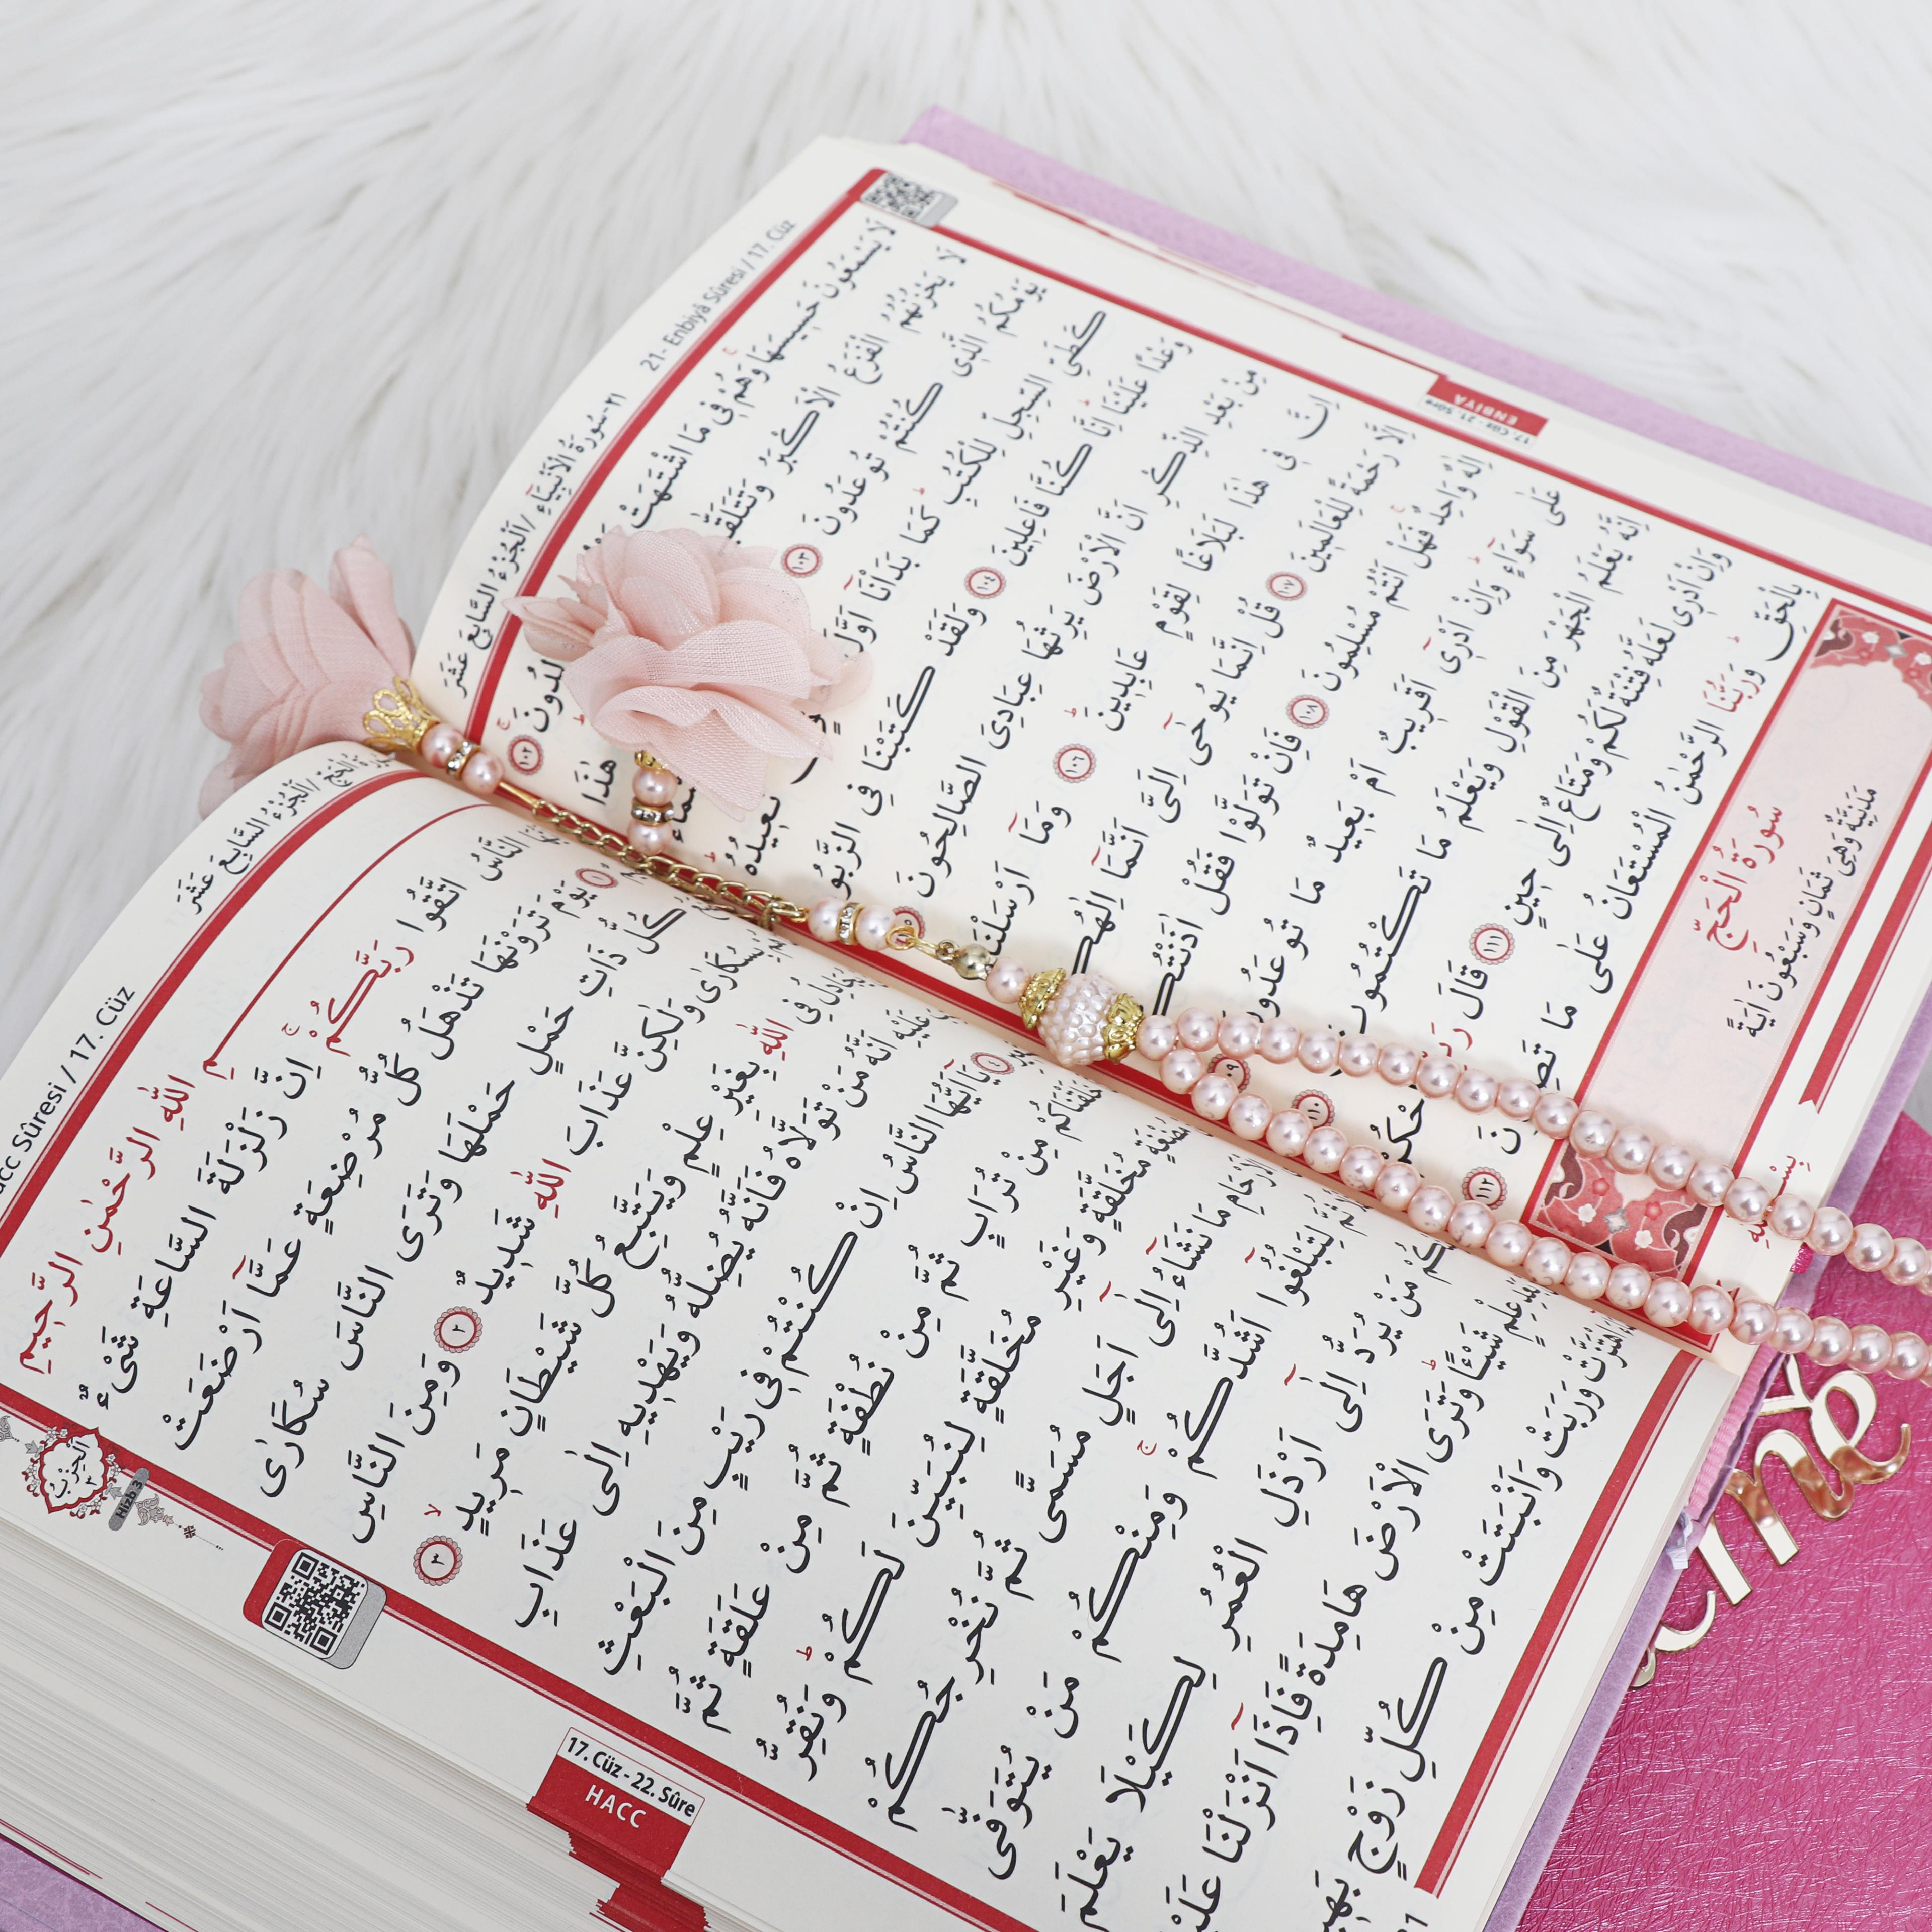 21- Enbiyâ Sûresi / 17. Cüz
٢١-سُورَةُ الْاَنْبِيَاءِ / اَلْجُزْءُ السَّابِعَ عَشَرَ
لَا يَسْمَعُونَ حَسِيسَهَاۚ وَهُمْ فٖى مَا اشْتَهَتْ
لِدُونَۚ ١٠٢
لَا يَحْزُنُهُمُ الْفَزَعُ الْاَكْبَرُ وَتَتَلَقّٰ
هٰذَا
يَوْمُكُمُ الَّذٖى كُنْتُمْ تُوعَدُونَ ١٠٣
كَطَىِّ السِّجِلِّ لِلْكُتُبِؕ كَمَا بَدَاْنَٓا اَوَّلَ
نُعٖيدُهُؕ
وَعْدًا عَلَيْنَاؕ اِنَّا كُنَّا فَاعِلٖينَ ١٠٤ وَلَقَدْ كَتَبْنَا فِى الزَّبُورِ
مِنْ بَعْدِ الذِّكْرِ اَنَّ الْاَرْضَ يَرِثُهَا عِبَادِىَ الصَّالِحُونَ
اِنَّ فٖى هٰذَا لَبَلَاغًا لِقَوْمٍ عَابِدٖينَؕ ١٠٦ وَمَٓا اَرْسَلْنَا
اِلَّا رَحْمَةً لِلْعَالَمٖينَ ١٠٧ قُلْ اِنَّمَا يُوحٰٓى اِلَىَّ اَنَّمَٓا اِلٰهُ
اِلٰهٌ وَاحِدٌۚ فَهَلْ اَنْتُمْ مُسْلِمُونَ ١٠٨ فَاِنْ تَوَلَّوْا فَقُلْ اٰذَنْتُ
عَلٰى سَوَٓاءٍؕ وَاِنْ اَدْرٖٓى اَقَرٖيبٌ اَمْ بَعٖيدٌ مَا تُوعَدُو
اِنَّهُ يَعْلَمُ الْجَهْرَ مِنَ الْقَوْلِ وَيَعْلَمُ مَا تَكْتُمُو ١١٠
وَاِنْ اَدْرٖى لَعَلَّهُ فِتْنَةٌ لَكُمْ وَمَتَاعٌ اِلٰى حٖينٍ ١١١ قَالَ
بِالْحَقِّؕ وَرَبُّنَا الرَّحْمٰنُ الْمُسْتَعَانُ عَلٰى مَا تَصِ نَ ١١٢
سُورَةُ الْحَجِّ
مَدَنِيَّةٌ وَهِىَ ثَمَانٍ وَسَبْعُونَ اٰيَةً
17. Cüz - 21. Sûre
ENBİYÂ
acc Sûresi / 17. Cüz
ةُ الْحَجِّ / اَلْجُزْءُ السَّابِعَ عَشَرَ
مِ اللّٰهِ الرَّحْمٰنِ الرَّحٖيمِ
النَّاسُ اتَّقُوا رَبَّكُمْۚ اِنَّ زَلْزَلَةَ السَّاعَةِ شَىْءٌ
١ يَوْمَ تَرَوْنَهَا تَذْهَلُ كُلُّ مُرْضِعَةٍ عَمَّٓا اَرْضَعَتْ
كُلُّ ذَاتِ حَمْلٍ حَمْلَهَا وَتَرَى النَّاسَ سُكَارٰى
بِسُكَارٰى وَلٰكِنَّ عَذَابَ اللّٰهِ شَدٖيدٌ ٢ وَمِنَ النَّاسِ
يُجَادِلُ فِى اللّٰهِ بِغَيْرِ عِلْمٍ وَيَتَّبِعُ كُلَّ شَيْطَانٍ مَرٖيدٍۙ ٣
عَلَيْهِ اَنَّهُ مَنْ تَوَلَّاهُ فَاَنَّهُ يُضِلُّهُ وَيَهْدٖيهِ اِلٰى عَذَابِ
٤ يَٓا اَيُّهَا النَّاسُ اِنْ كُنْتُمْ فٖى رَيْبٍ مِنَ الْبَعْثِ
خَلَقْنَاكُمْ مِنْ تُرَابٍ ثُمَّ مِنْ نُطْفَةٍ ثُمَّ مِنْ عَلَقَةٍ ثُمَّ
مُضْغَةٍ مُخَلَّقَةٍ وَغَيْرِ مُخَلَّقَةٍ لِنُبَيِّنَ لَكُمْؕ وَنُقِرُّ
الْاَرْحَامِ مَا نَشَٓاءُ اِلٰٓى اَجَلٍ مُسَمًّى ثُمَّ نُخْرِجُكُمْ
ثُمَّ لِتَبْلُغُٓوا اَشُدَّكُمْۚ وَمِنْكُمْ مَنْ يُتَوَفّٰى
مَنْ يُرَدُّ اِلٰٓى اَرْذَلِ الْعُمُرِ لِكَيْلَا يَعْلَمَ
عِلْمٍ شَيْئًاؕ وَتَرَى الْاَرْضَ هَامِدَةً فَاِذَٓا اَنْزَلْنَا عَلَيْ
اهْتَزَّتْ وَرَبَتْ وَاَنْبَتَتْ مِنْ كُلِّ زَوْجٍ بَهٖي
اَلْحِزْبُ ٣
Hizb 3
17. Cüz - 22. Sûre
HACC